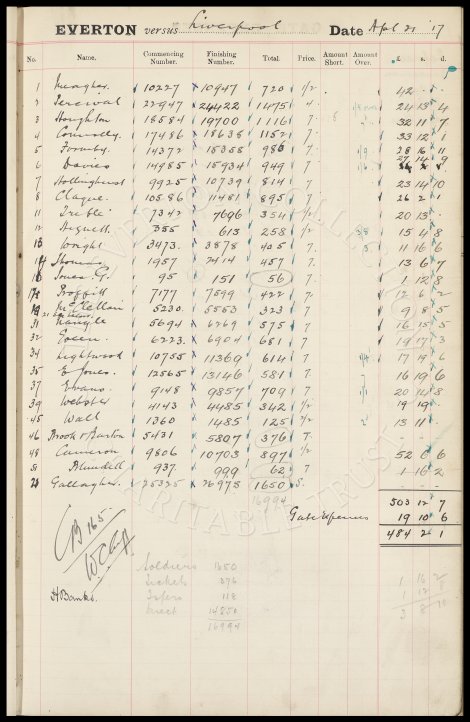 EVERTON versus Liverpool Date Apl 21 '17
No. Name. Commencing Number. Finishing Number. Total. Price. Amount Short. Amount Over. £ s. d.
1 Meagher. 10227 10947 720 1/2 42 - -
2 Percival 22947 24422 1475 4 24 13 4
3 Houghton 18584 19700 1116 7 32 11 7
4 Connolly. 17486 18638 1152 7 33 12 1
5 Formby. 14372 15358 986 7 28 16 11
6 Davies 14985 15934 949 7 27 14 9
7 Hollinghurst 9925 10739 814 7 23 14 10
8 Clague. 10586 11481 895 7 26 2 1
11 Treble 7342 7696 354 1/2 20 13
12 355 613 258 1/2 15 4 8
13 Wright 3473. 3878 405 7 11 16 6
14 Thomas 1957 2414 457 7 13 6 7
16 Jones G. 95 151 56 7 1 12 8
Proffitt 7177 7599 422 7 12 6 2
McLellan 5230 5553 323 7 9 8 5
31 5694 6269 575 7 16 15 5
32 6223 6904 681 7 19 17 3
34 Lightwood 10755 11369 614 7 17 19 6
35 E Jones. 12565 13146 581 7 16 19 6
37 Evans 9148 9857 709 7 20 14 8
39 Webster 4143 4485 342 1/2 19 19
45 Wall 1360 1485 125 2/2 13 11
46 Brook & Barton 5431 5807 376 T
48 Cameron 9806 10703 897 1/2 52 6 6
Blundell 937 999 62 7 1 16 2
Gallagher. 25325 26975 1650 S.
16994 503 12 7
Gate Expenses 19 10 6
484 2 1
165
Soldiers 1650
Tickets 376
118
H Banks. 14850
16994
1 16 2
1 12 8
3 8 10
EVERTON COLLECTION CHARITABLE TRUST